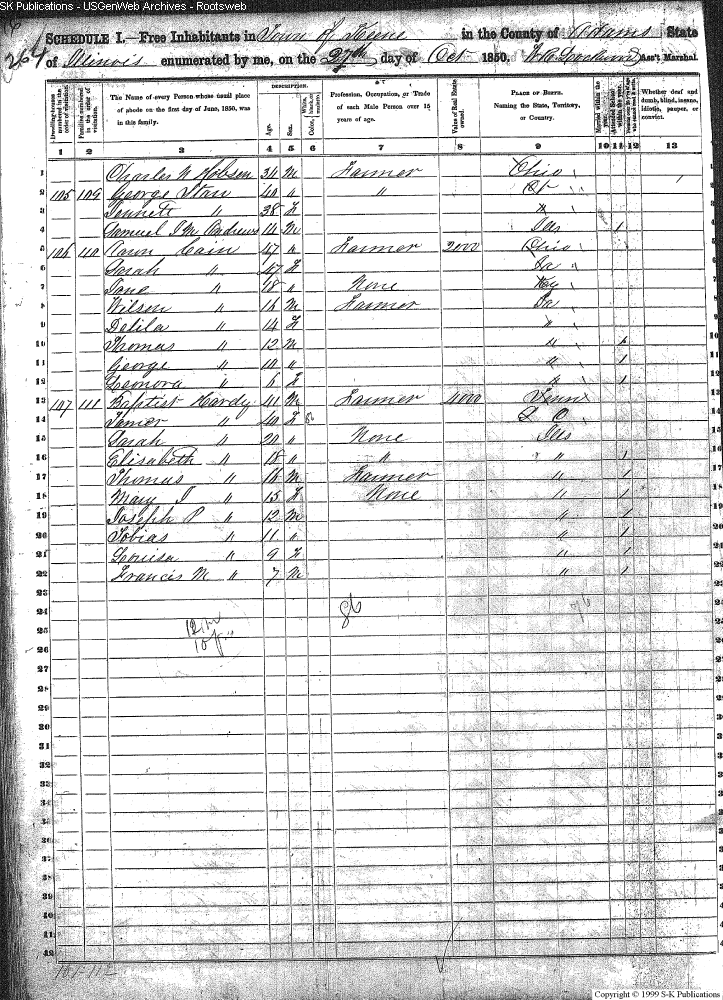 SK Publications - USGenWeb Archives - Rootsweb
264
SCHEDULE I.—Free Inhabitants in Town of Keene in the County of Adams State
of Illinois enumerated by me, on the 27th day of Oct 1850. Ass't Marshal.
Dwelling-houses numbered in the order of visitation.
Families numbered in the order of visitation.
The Name of every Person whose usual place of abode on the first day of June, 1850, was in this family.
DESCRIPTION.
Age.
Sex.
Color, White, black, or mulatto.
Profession, Occupation, or Trade of each Male Person over 15 years of age.
Value of Real Estate owned.
PLACE OF BIRTH. Naming the State, Territory, or Country.
Married within the year.
Attended School within the year.
Persons over 20 y'rs of age who cannot read & write.
Whether deaf and dumb, blind, insane, idiotic, pauper, or convict.
1 2 3 4 5 6 7 8 9 10 11 12 13
1 Charles W Hobson 34 M Farmer Ohio 1
2 105 109 George Starr 40 " " 2
3 " 38 F " 3
4 Samuel Andrews 14 M Ills 1 4
5 106 110 Aaron Cain 47 " Farmer 2000 Ohio 5
6 Sarah " 47 F 6
7 Jane " 18 " None Ky 7
8 Wilson " 16 M Farmer 8
9 Delila " 14 F " 9
10 Thomas " 12 M " 1 10
11 George " 10 " " 1 11
12 Leonora " 6 F " 1 12
13 107 111 Baptist Hardy 41 M Farmer 4000 Tenn 13
14 " 40 F S C 14
15 Sarah " 20 " None Ills 15
16 Elisabeth " 18 " " " 1 16
17 Thomas " 16 M Farmer " 1 17
18 Mary J " 15 F None " 1 18
19 Joseph P " 12 M " 1 19
20 Tobias " 11 " " 1 20
21 Louisa " 9 F " 1 21
22 Francis M " 7 M " 1 22
23 23
24 24
25 12 m 25
26 10 f 26
27 27
28 28
29 29
30 30
31 31
32 32
33 33
34 34
35 35
36 36
37 37
38 38
39 39
40 40
41 41
42 42
Copyright © 1999 S-K Publications